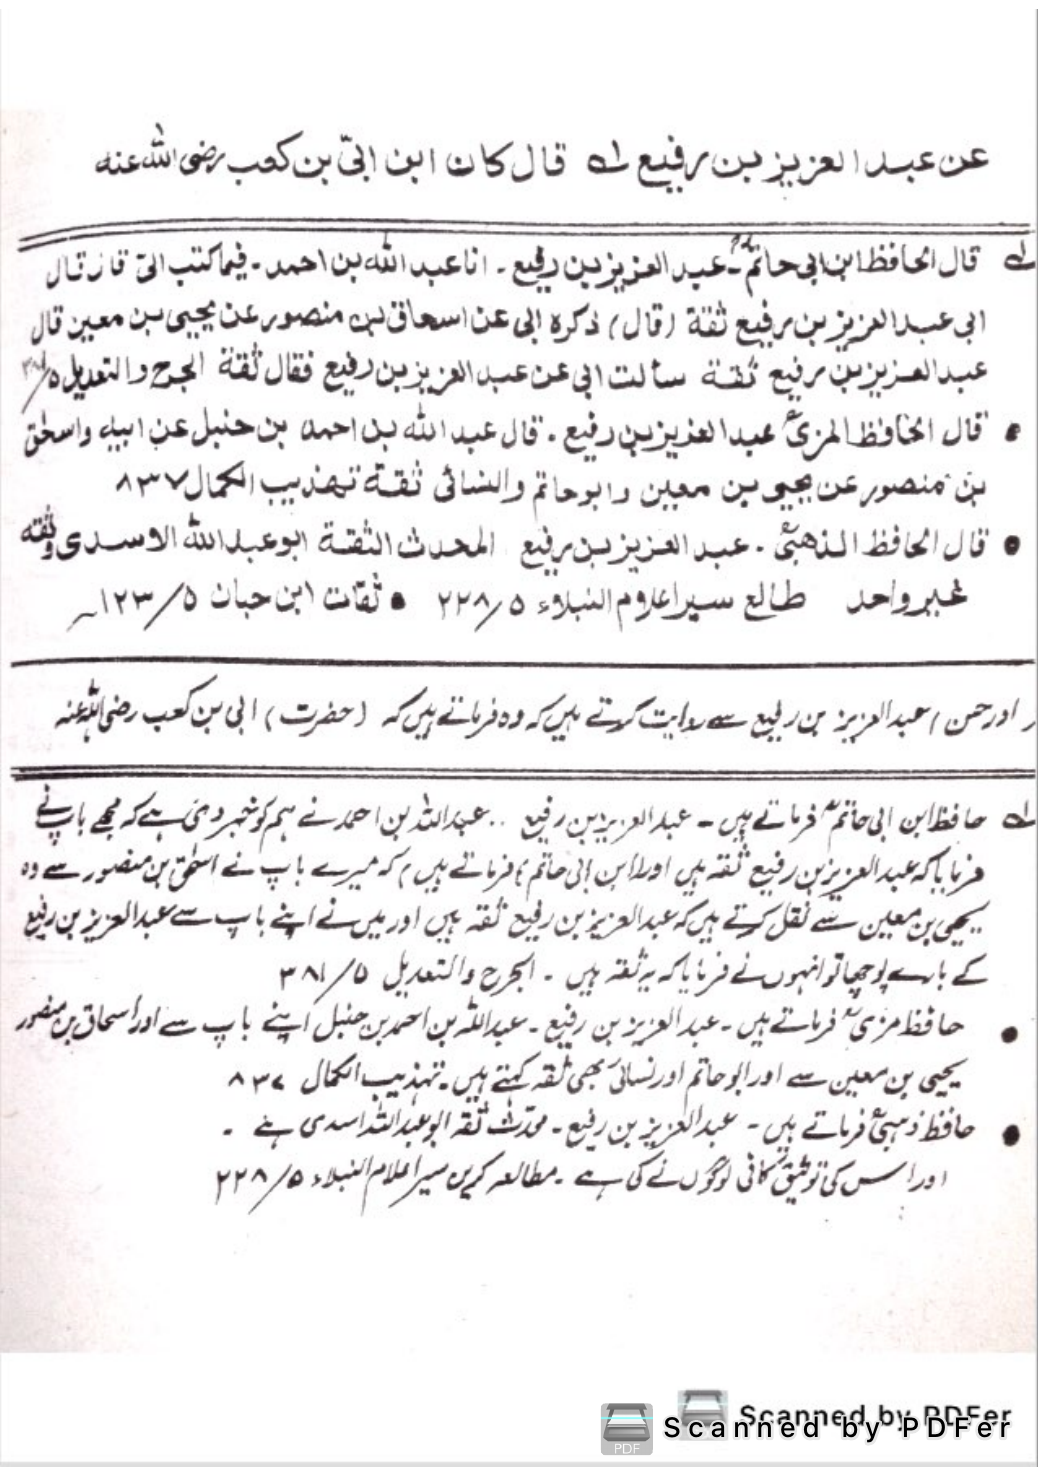 عن عبد العزيز بن رفيع لہ قال كان ابن ابىّ بن كعب رضى الله عنه
لہ قال الحافظ ابن ابى حاتمؒ - عبد العزيز بن رفيع - انا عبد الله بن احمد - فيما كتب الىّ قال قال
ابى عبد العزيز بن رفيع ثقة (قال) ذكره ابى عن اسحاق بن منصور عن يحيى بن معين قال
عبد العزيز بن رفيع ثقة سألت ابى عن عبد العزيز بن رفيع فقال ثقة الجرح والتعديل ٥/٣٨١
● قال الحافظ المزىؒ عبد العزيز بن رفيع . قال عبد الله بن احمد بن حنبل عن ابيه واسحٰق
بن منصور عن يحيى بن معين وابوحاتم والنسائى ثقة تهذيب الكمال ٨٣٧
● قال الحافظ الذهبىؒ . عبد العزيز بن رفيع المحدث الثقة ابوعبد الله الاسدى وثقه
غير واحد طالع سير اعلام النبلاء ٥/٢٢٨ ● ثقات ابن حبان ٥/١٢٣
اور حسن) عبد العزیز بن رفیع سے روایت کرتے ہیں کہ وہ فرماتے ہیں کہ (حضرت) ابی بن کعب رضی اللہ عنہ
لہ حافظ ابن ابی حاتمؒ فرماتے ہیں - عبد العزیز بن رفیع .. عبد اللہ بن احمد نے ہم کو خبر دی ہے کہ مجھے باپ نے
فرمایا کہ عبد العزیز بن رفیع ثقہ ہیں اور (ابن ابی حاتم فرماتے ہیں) کہ میرے باپ نے اسحٰق بن منصور سے وہ
یحیی بن معین سے نقل کرتے ہیں کہ عبد العزیز بن رفیع ثقہ ہیں اور میں نے اپنے باپ سے عبد العزیز بن رفیع
کے بارے پوچھا تو انہوں نے فرمایا کہ یہ ثقہ ہیں - الجرح والتعدیل ٥/٣٨١
● حافظ مزیؒ فرماتے ہیں - عبد العزیز بن رفیع - عبد اللہ بن احمد بن حنبل اپنے باپ سے اور اسحاق بن منصور
یحیی بن معین سے اور ابوحاتم اور نسائی بھی ثقہ کہتے ہیں - تہذیب الکمال ٨٣٧
● حافظ ذہبیؒ فرماتے ہیں - عبد العزیز بن رفیع - محدّث ثقہ ابوعبد اللہ اسدی ہے -
اور اس کی توثیق کافی لوگوں نے کی ہے - مطالعہ کریں سیر اعلام النبلاء ٥/٢٢٨
Scanned by PDFer
Scanned by PDFer
PDF